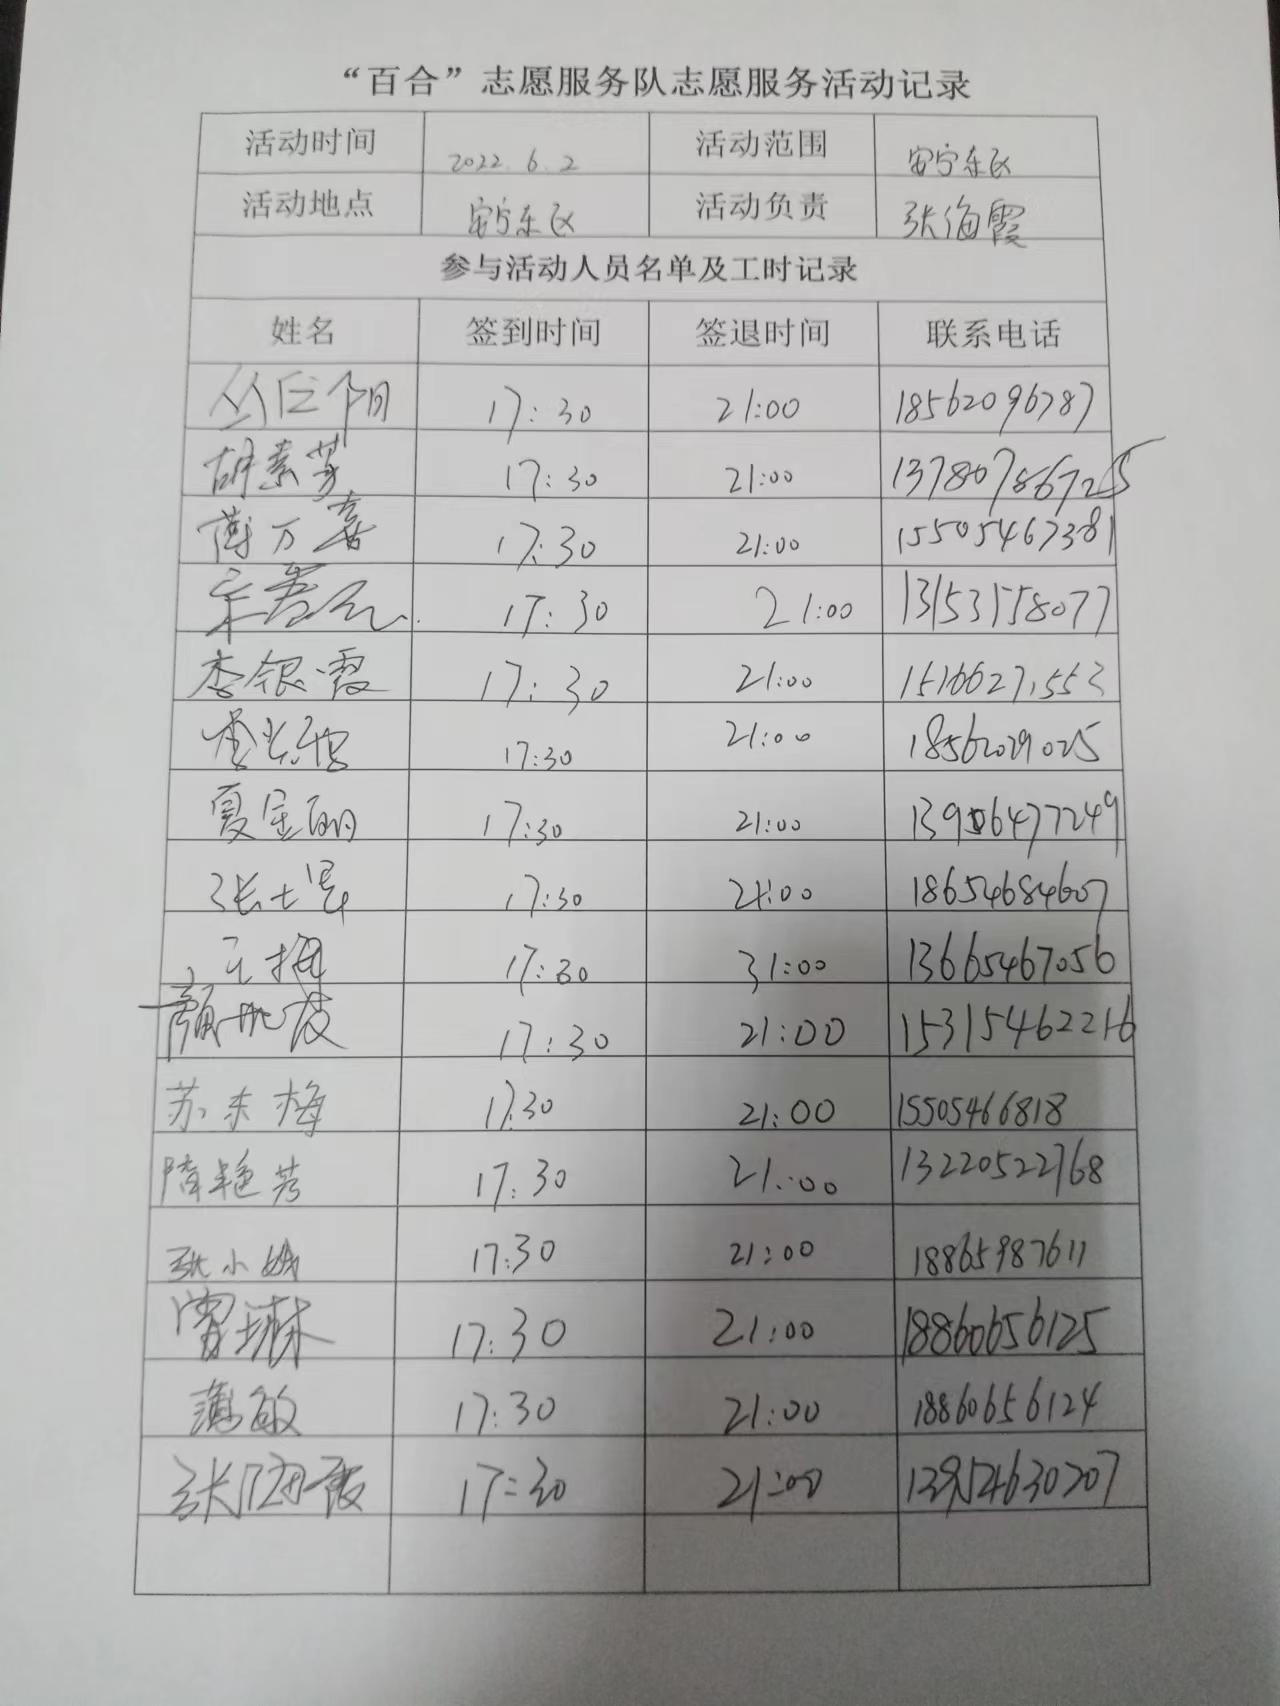 “百合”志愿服务队志愿服务活动记录
活动时间 2022.6.2 活动范围 安宁东区
活动地点 安宁东区 活动负责 张海霞
参与活动人员名单及工时记录
姓名 签到时间 签退时间 联系电话
17:30 21:00 18562096787
胡素芳 17:30 21:00 13780786725
薄万喜 17:30 21:00 15505467381
17:30 21:00 13153158077
李银霞 17:30 21:00 15166271553
17:30 21:00 18562029025
夏金丽 17:30 21:00 13906477249
张士军 17:30 21:00 18654684607
王梅 17:30 31:00 13665467056
17:30 21:00 15315462216
苏东梅 17:30 21:00 15505466818
隋艳芳 17:30 21:00 13220522768
张小娥 17:30 21:00 18865987611
曹琳 17:30 21:00 18860656125
薄敏 17:30 21:00 18860656124
张海霞 17:30 21:00 13954630207